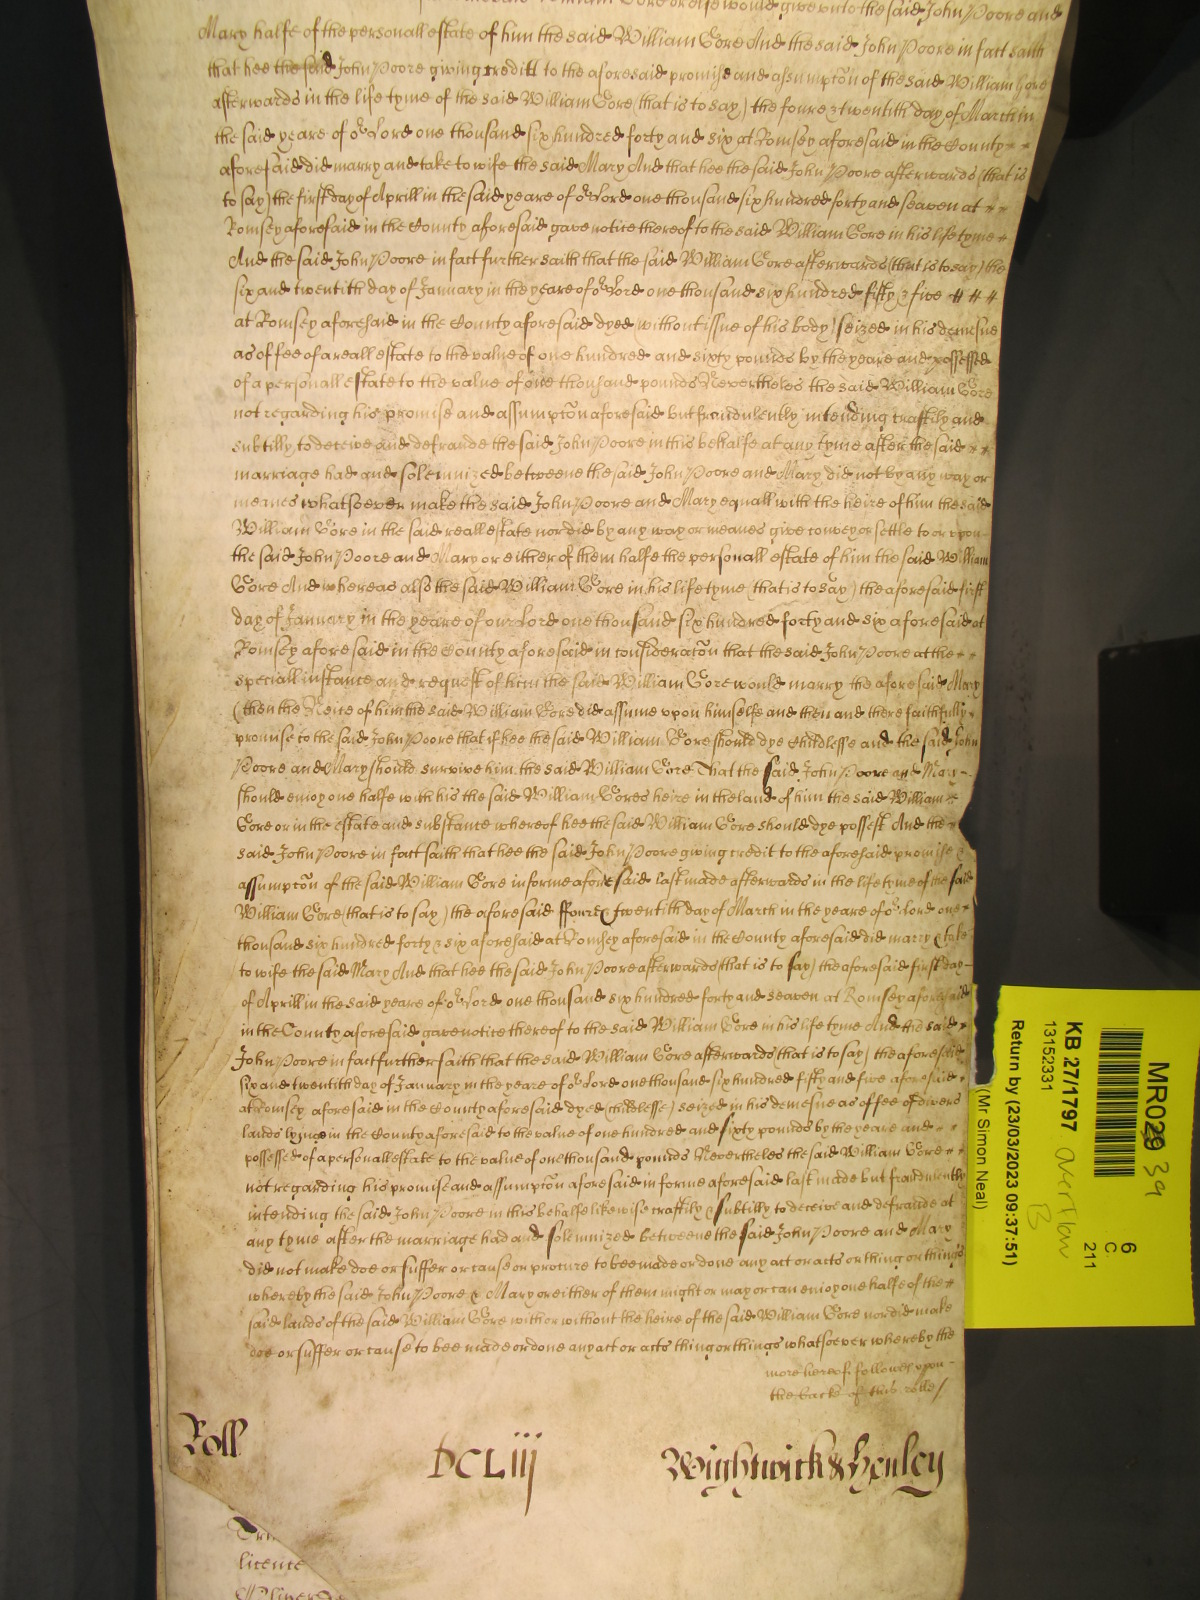 William Gore or else would give unto the said John Poore and
Mary halfe of the personall estate of him the said William Gore And the said John Poore in fact saith
that hee the said John Poore giving creditt to the aforesaid promise and assumpcõn of the said William Gore
afterwards in the life tyme of the said William Gore (that is to say) the foure & twentith day of March in
the said yeare of oʳ Lord one thousand six hundred forty and six at Romsey aforesaid in the County
aforesaid did marry and take to wife the said Mary And that hee the said John Poore afterwards (that is
to say) the first day of Aprill in the said yeare of oʳ Lord one thousand six hundred forty and seaven at
Romsey aforesaid in the County aforesaid gave notice thereof to the said William Gore in his life tyme
And the said John Poore in fact further saith that the said William Gore afterwards (that is to say) the
six and twentith day of January in the yeare of oʳ Lord one thousand six hundred fifty & five
at Romsey aforesaid in the County aforesaid dyed without issue of his body seized in his demesne
as of fee of a reall estate to the value of one hundred and sixty pounds by the yeare and possessed
of a personall estate to the value of one thousand pounds Nevertheles the said William Gore
not regarding his promise and assumpcõn aforesaid but fraudulently intending craftily and
subtilly to deceive and defraude the said John Poore in this behalfe at any tyme after the said
marriage had and solemnized betweene the said John Poore and Mary did not by any way or
meanes whatsoever make the said John Poore and Mary equall with the heire of him the said
William Gore in the said reall estate nor did by any way or meanes give convey or settle to or upon
the said John Poore and Mary or either of them halfe the personall estate of him the said William
Gore And whereas also the said William Gore in his life tyme (that is to say) the aforesaid first
day of January in the yeare of our Lord one thousand six hundred forty and six aforesaid at
Romsey aforesaid in the County aforesaid in consideracõn that the said John Poore at the
speciall instance and request of him the said William Gore would marry the aforesaid Mary
(then the Neice of him the said William Gore did assume upon himselfe and then and there faithfully
promise to the said John Poore that if hee the said William Gore should dye Childlesse and the said John
Poore and Mary should survive him the said William Gore That the said John Poore and Mary
should enioy one halfe with his the said William Gores heire in the land of him the said William
Gore or in the estate and substance whereof hee the said William Gore should dye possest And the
said John Poore in fact saith that hee the said John Poore giving credit to the aforesaid promise &
assumpcõn of the said William Gore in forme aforesaid last made afterwards in the life tyme of the said
William Gore (that is to say) the aforesaid ffoure & twentith day of March in the yeare of oʳ Lord one
thousand six hundred forty & six aforesaid at Romsey aforesaid in the County aforesaid did marry & take
to wife the said Mary And that hee the said John Poore afterwards (that is to say) the aforesaid first day
of Aprill in the said yeare of oʳ Lord one thousand six hundred forty and seaven at Romsey aforesaid
in the County aforesaid gave notice thereof to the said William Gore in his life tyme And the said
John Poore in fact further saith that the said William Gore afterwards (that is to say) the aforesaid
six and twentith day of January in the yeare of oʳ Lord one thousand six hundred fifty and five aforesaid
at Romsey aforesaid in the County aforesaid dyed (childlesse) seized in his demesne as of fee of divers
lands lying in the County aforesaid to the value of one hundred and sixty pounds by the yeare and
possessed of a personall estate to the value of one thousand pounds Nevertheles the said William Gore
not regarding his promise and assumpcõn aforesaid in forme aforesaid last made but fraudulently
intending the said John Poore in this behalfe likewise craftily & subtilly to deceive and defraude at
any tyme after the marriage had and solemnized betweene the said John Poore and Mary
did not make doe or suffer or cause or procure to bee made or done any act or acts or thing or things
whereby the said John Poore & Mary or either of them might or may or can enioy one halfe of the
said lands of the said William Gore with or without the heire of the said William Gore nor did make
doe or suffer or cause to bee made or done any act or acts thing or things whatsoever whereby the
more hereof followes upon
the backe of this rolle/
Roll DCLiij Wightwick & Henley
licence
MR029 39
6
C
211
KB 27/1797 overflow B
13152331
Return by (23/03/2023 09:37:51)
(Mr Simon Neal)